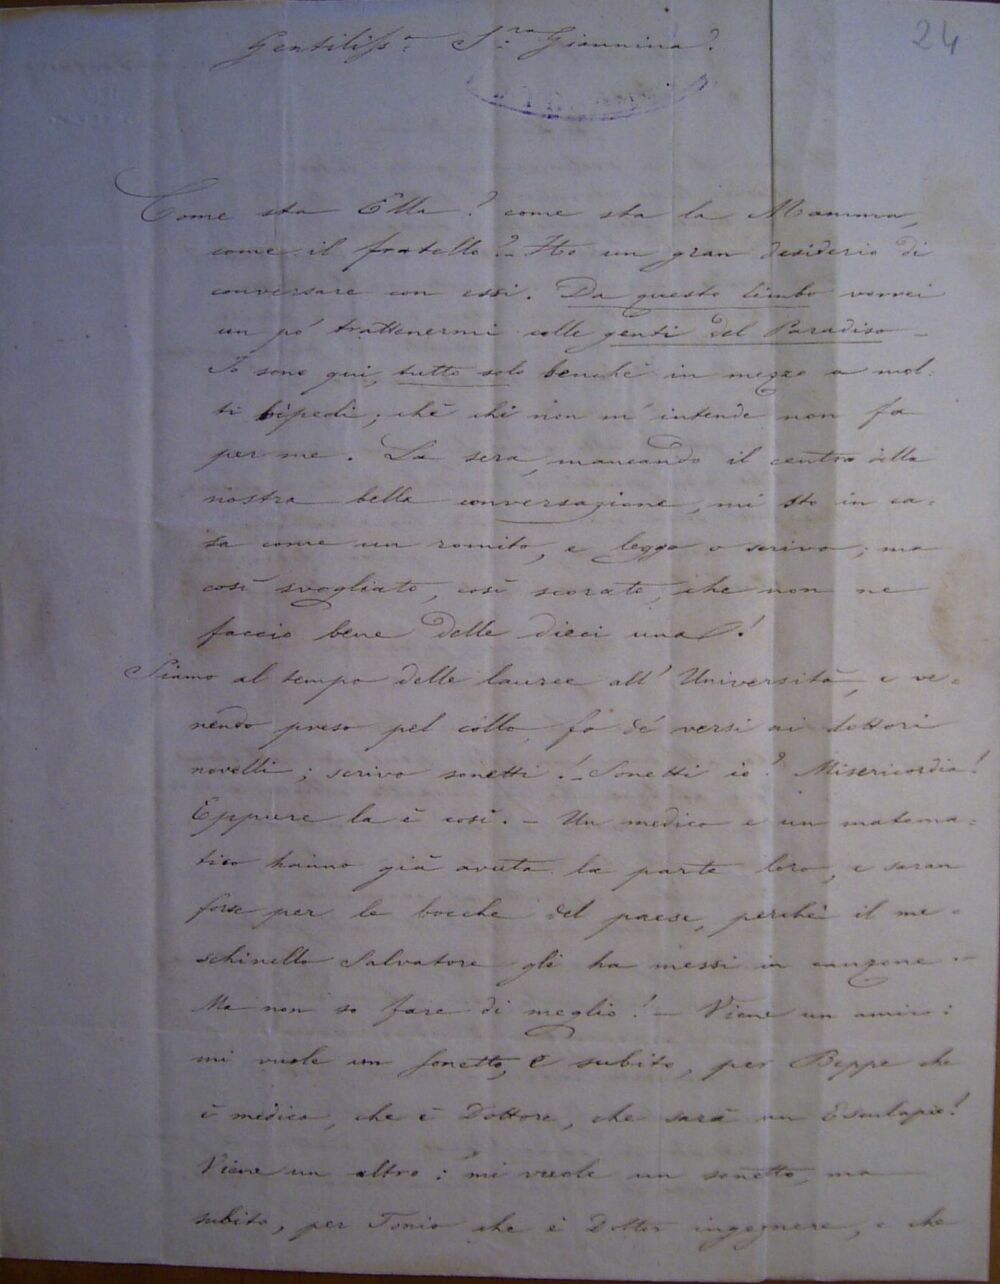 24
Gentiliss.a S.ra Giannina!
Come sta Ella? come sta la Mamma,
come il fratello? - Ho un gran desiderio di
conversare con essi. Da questo limbo vorrei
un pó trattenermi colle genti del Paradiso -
Io sono qui, tutto solo benchè in mezzo a mol-
ti bipedi; chè chi non m'intende non fa
per me. La sera, mancando il centro della
nostra bella conversazione, mi sto in ca-
sa come un romito, e leggo o scrivo; ma
così svogliato, così scorato, che non ne
faccio bene delle dieci una!
Siamo al tempo delle lauree all'Università, e ve-
nendo preso pel collo, fo de' versi ai dottori
novelli; scrivo sonetti! - Sonetti io? Misericordia!
Eppure la è così. - Un medico e un matema-
tico hanno già avuta la parte loro, e saran
forse per le bocche del paese, perchè il me-
schinello Salvatore gli ha messi in canzone -
Ma non so fare di meglio! - Viene un amico:
mi vuole un sonetto, e subito, per Beppe che
è medico, che è Dottore, che sarà un Esculapio!
Viene un altro: mi vuole un sonetto, ma
subito, per Tonio che è Dottor ingegnere, e che